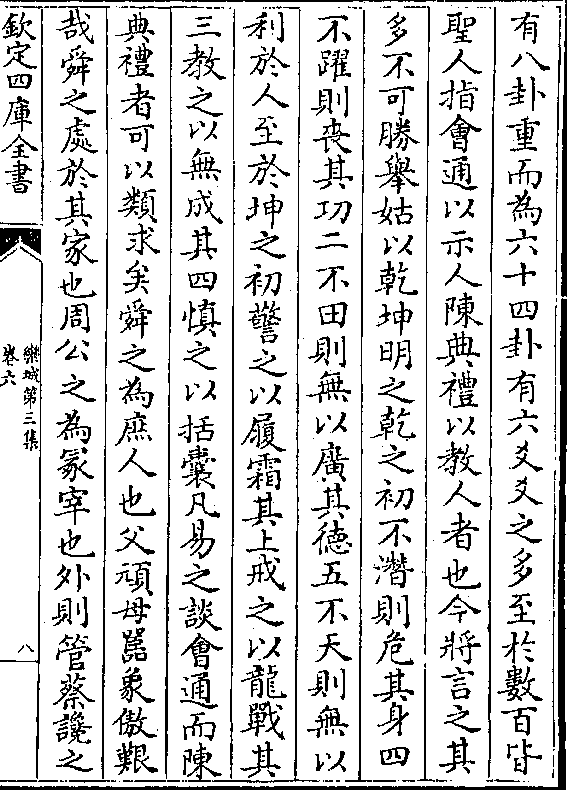 有八卦重而為六十四卦有六爻爻之多至於數百皆
聖人指會通以示人陳典禮以教人者也今將言之其
多不可勝舉姑以乾坤明之乾之初不潛則危其身四
不躍則喪其功二不田則無以廣其德五不天則無以
利於人至於坤之初警之以履霜其上戒之以龍戰其
三教之以無成其四慎之以括囊凡易之談會通而陳
典禮者可以類求矣舜之為庶人也父頑母嚚象傲艱
哉舜之處於其家也周公之為冢宰也外則管蔡讒之
欽定四庫全書
欒城第三集
卷六
八